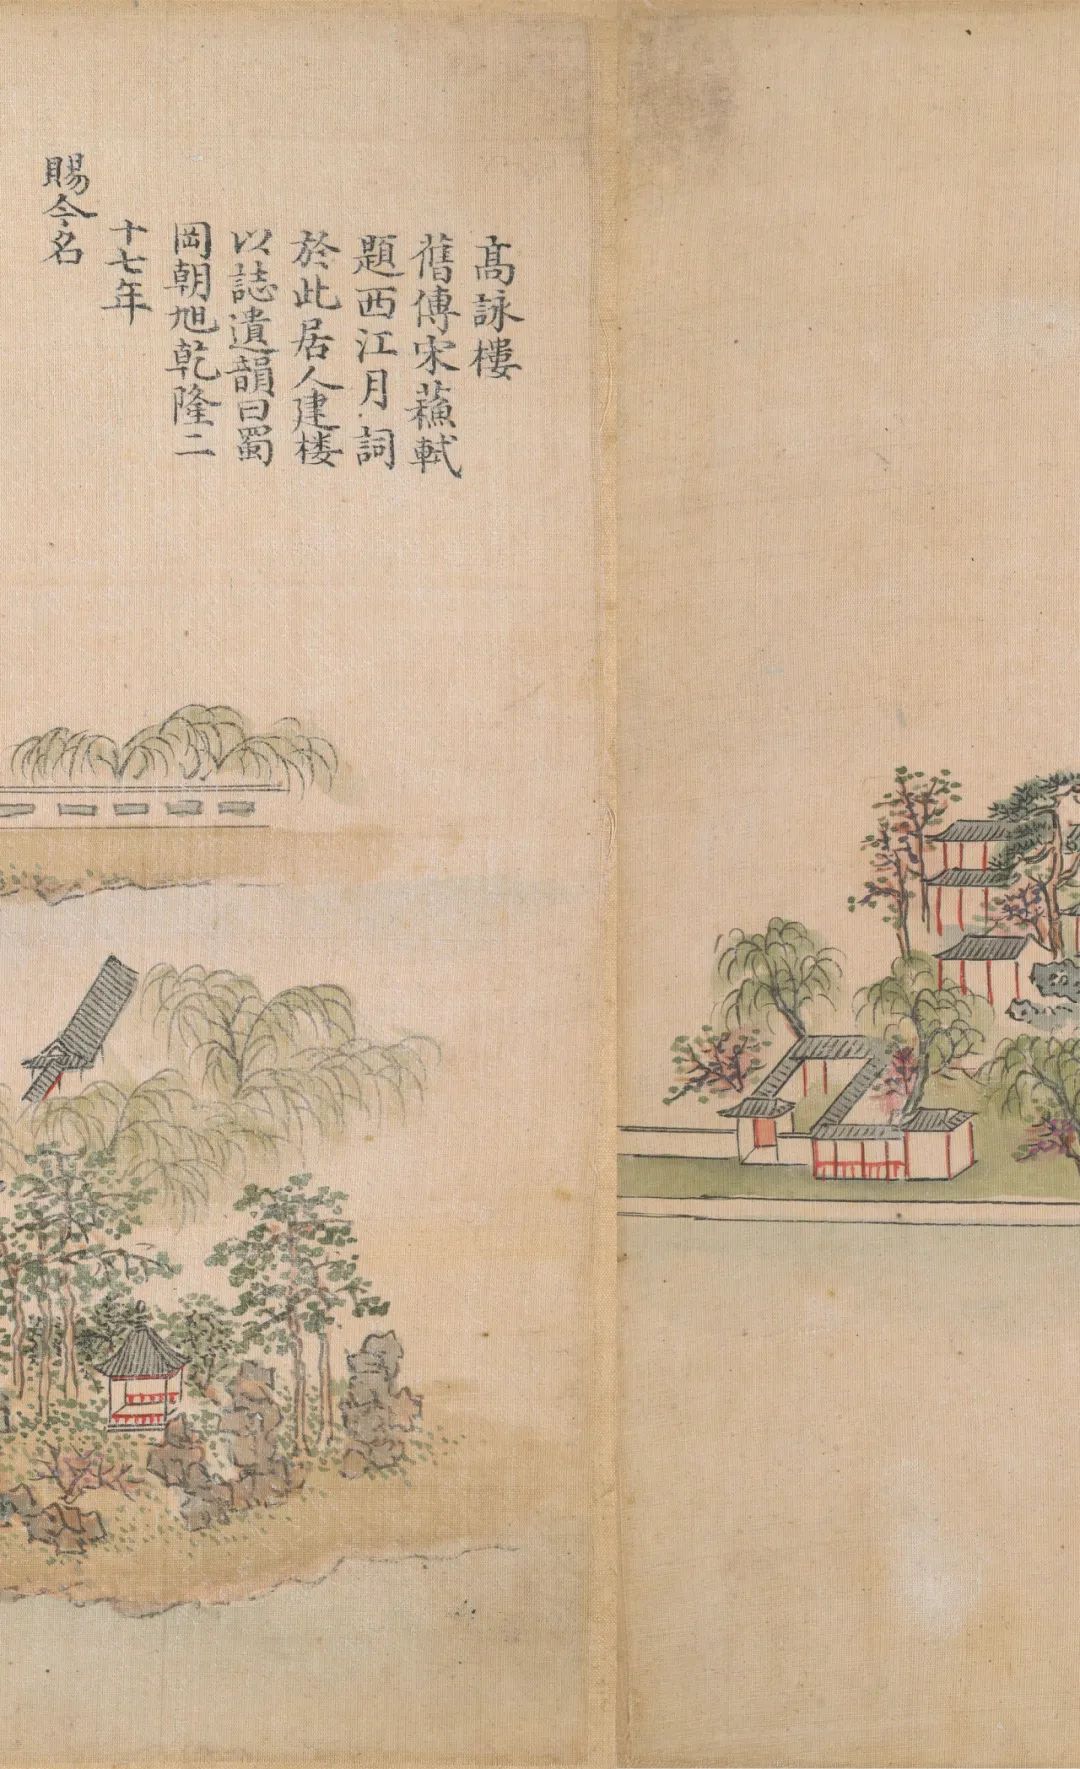 高詠樓
舊傳宋蘓軾
題西江月詞
於此居人建楼
以誌遺韻曰蜀
岡朝旭乾隆二
十七年
賜今名